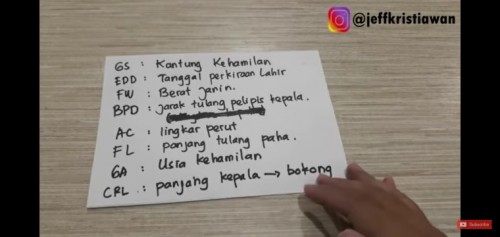 @jeffkristiawan
GS : Kantung Kehamilan
EDD : Tanggal perkiraan Lahir
FW : Berat janin.
BPD : jarak tulang pelipis kepala.
AC : lingkar perut
FL : panjang tulang paha.
GA : Usia kehamilan
CRL : panjang kepala → bokong
Subscribe